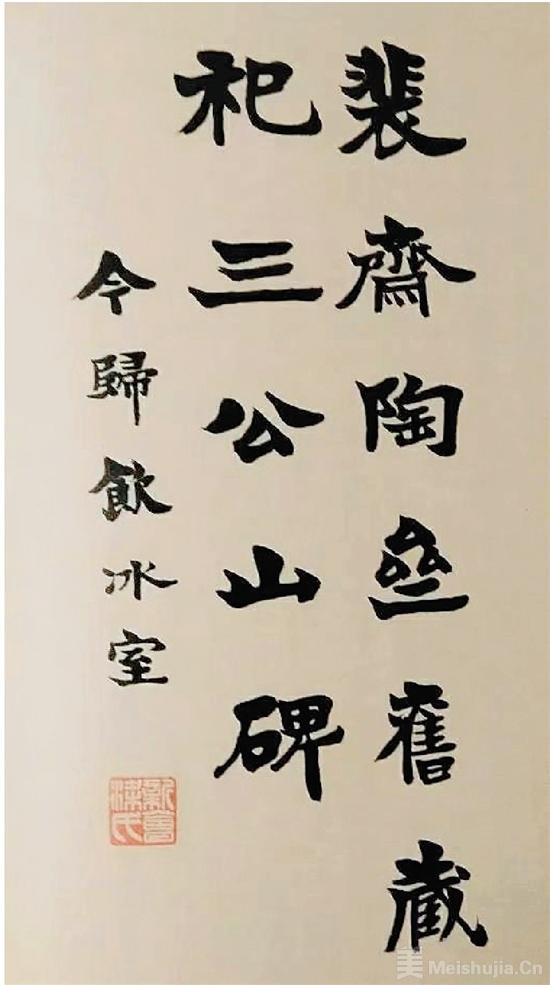 裴齋陶齋舊藏
祀三公山碑
今歸飲冰室
新會梁氏
Meishujia.Cn